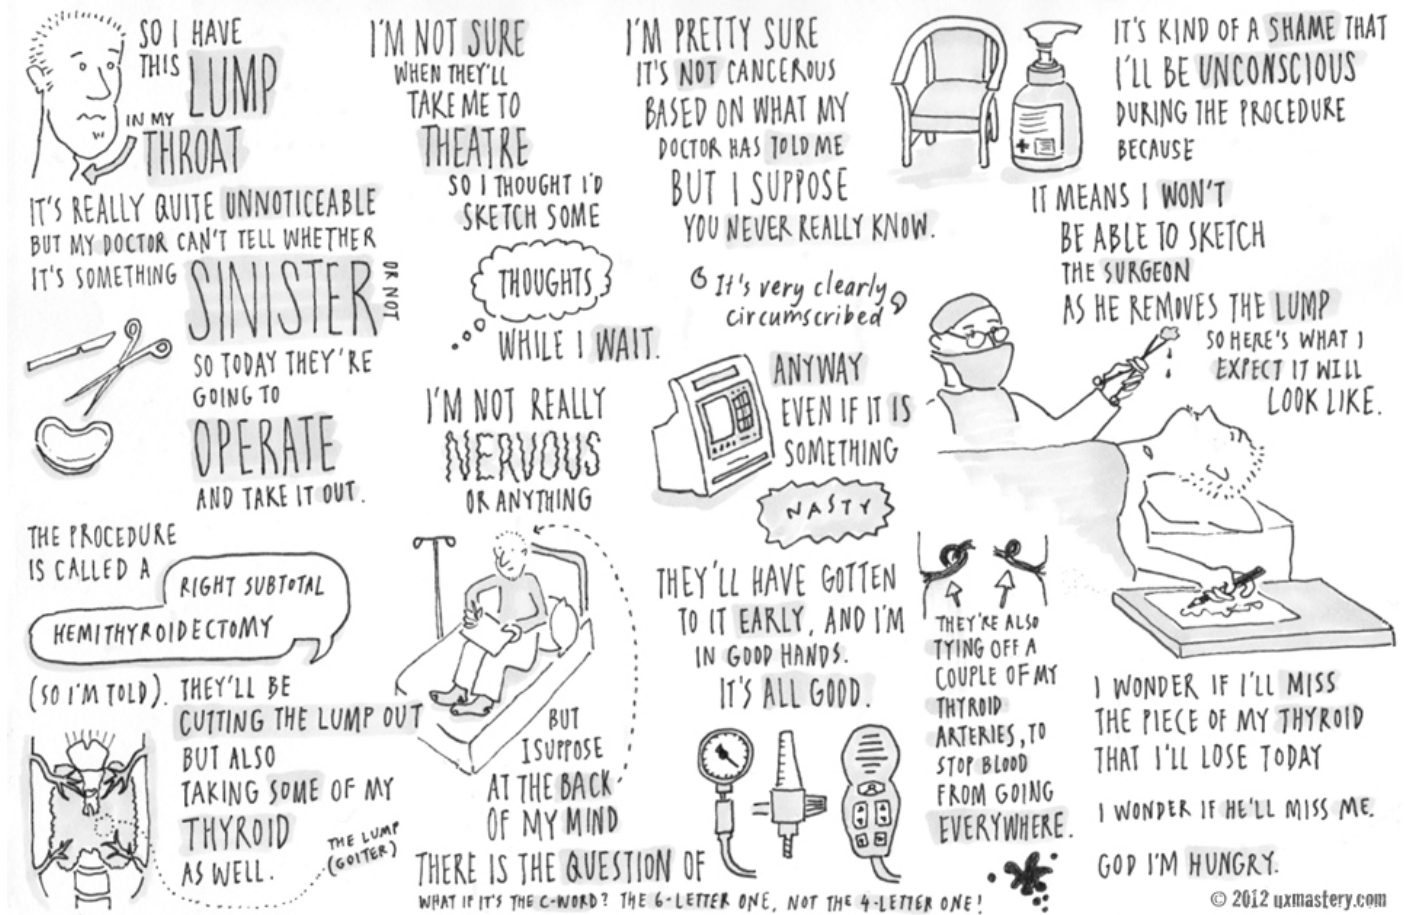 SO I HAVE
THIS LUMP
IN MY
THROAT
IT'S REALLY QUITE UNNOTICEABLE
BUT MY DOCTOR CAN'T TELL WHETHER
IT'S SOMETHING SINISTER
OR NOT
SO TODAY THEY'RE
GOING TO
OPERATE
AND TAKE IT OUT.
THE PROCEDURE
IS CALLED A
RIGHT SUBTOTAL
HEMITHYROIDECTOMY
(SO I'M TOLD). THEY'LL BE
CUTTING THE LUMP OUT
BUT ALSO
TAKING SOME OF MY
THYROID
AS WELL.
THE LUMP
(GOITER)
I'M NOT SURE
WHEN THEY'LL
TAKE ME TO
THEATRE
SO I THOUGHT I'D
SKETCH SOME
THOUGHTS
WHILE I WAIT.
I'M NOT REALLY
NERVOUS
OR ANYTHING
BUT
I SUPPOSE
AT THE BACK
OF MY MIND
THERE IS THE QUESTION OF
WHAT IF IT'S THE C-WORD? THE 6-LETTER ONE, NOT THE 4-LETTER ONE!
I'M PRETTY SURE
IT'S NOT CANCEROUS
BASED ON WHAT MY
DOCTOR HAS TOLD ME
BUT I SUPPOSE
YOU NEVER REALLY KNOW.
It's very clearly
circumscribed
ANYWAY
EVEN IF IT IS
SOMETHING
NASTY
THEY'LL HAVE GOTTEN
TO IT EARLY, AND I'M
IN GOOD HANDS.
IT'S ALL GOOD.
THEY'RE ALSO
TYING OFF A
COUPLE OF MY
THYROID
ARTERIES, TO
STOP BLOOD
FROM GOING
EVERYWHERE.
IT'S KIND OF A SHAME THAT
I'LL BE UNCONSCIOUS
DURING THE PROCEDURE
BECAUSE
IT MEANS I WON'T
BE ABLE TO SKETCH
THE SURGEON
AS HE REMOVES THE LUMP
SO HERE'S WHAT I
EXPECT IT WILL
LOOK LIKE.
I WONDER IF I'LL MISS
THE PIECE OF MY THYROID
THAT I'LL LOSE TODAY
I WONDER IF HE'LL MISS ME.
GOD I'M HUNGRY.
© 2012 uxmastery.com